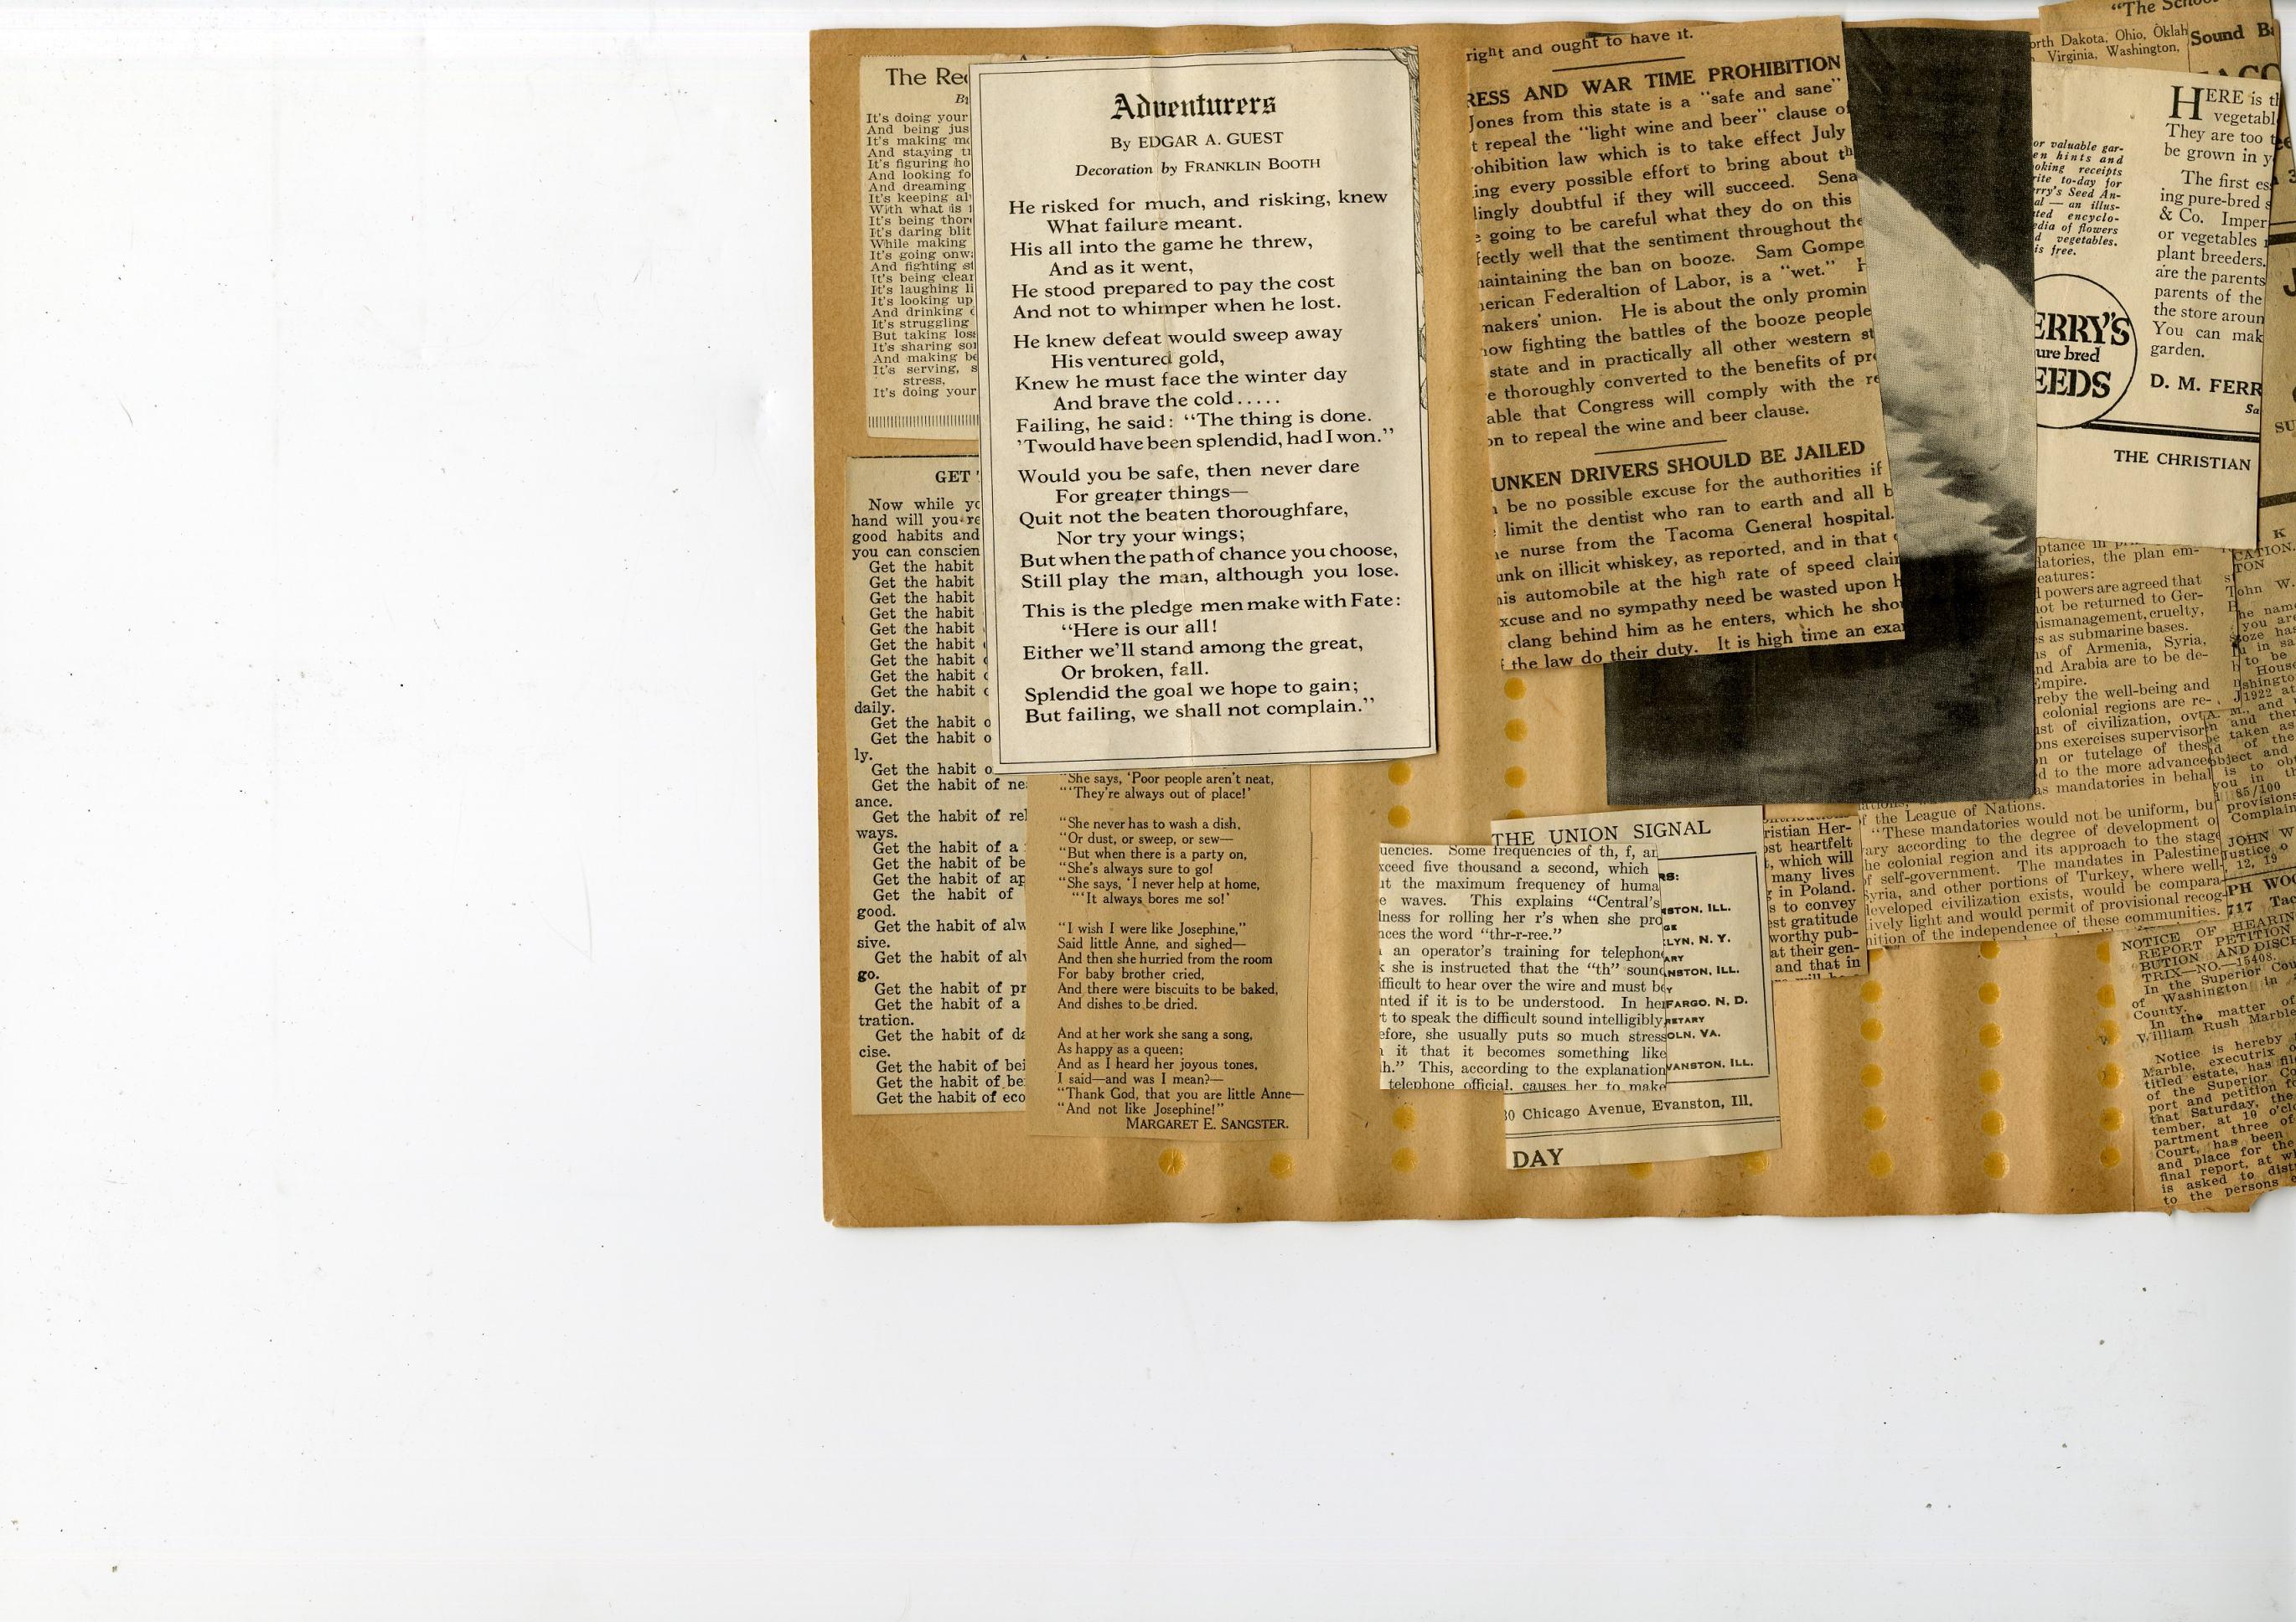 The Rec
By
It's doing your
And being jus
It's making mo
And staying tr
It's figuring ho
And looking fo
And dreaming
It's keeping al
With what is
It's being thor
It's daring blit
While making
It's going onw
And fighting st
It's being clear
It's laughing li
It's looking up
And drinking
It's struggling
But taking loss
It's sharing sor
And making be
It's serving, s
stress,
It's doing your
GET
Now while yo
hand will you re
good habits and
you can conscien
Get the habit
Get the habit
Get the habit
Get the habit
Get the habit
Get the habit
Get the habit
Get the habit
Get the habit
daily.
Get the habit o
Get the habit o
ly.
Get the habit o
Get the habit of ne
ance.
Get the habit of rel
ways.
Get the habit of a
Get the habit of be
Get the habit of ap
Get the habit of
good.
Get the habit of alw
sive.
Get the habit of alw
go.
Get the habit of pr
Get the habit of a
tration.
Get the habit of da
cise.
Get the habit of bei
Get the habit of be
Get the habit of eco
Adventurers
By EDGAR A. GUEST
Decoration by FRANKLIN BOOTH
He risked for much, and risking, knew
What failure meant.
His all into the game he threw,
And as it went,
He stood prepared to pay the cost
And not to whimper when he lost.
He knew defeat would sweep away
His ventured gold,
Knew he must face the winter day
And brave the cold.....
Failing, he said: "The thing is done.
'Twould have been splendid, had I won."
Would you be safe, then never dare
For greater things—
Quit not the beaten thoroughfare,
Nor try your wings;
But when the path of chance you choose,
Still play the man, although you lose.
This is the pledge men make with Fate:
"Here is our all!
Either we'll stand among the great,
Or broken, fall.
Splendid the goal we hope to gain;
But failing, we shall not complain."
"She says, 'Poor people aren't neat,
"'They're always out of place!'
"She never has to wash a dish,
"Or dust, or sweep, or sew—
"But when there is a party on,
"She's always sure to go!
"She says, 'I never help at home,
"'It always bores me so!'
"I wish I were like Josephine,"
Said little Anne, and sighed—
And then she hurried from the room
For baby brother cried,
And there were biscuits to be baked,
And dishes to be dried.
And at her work she sang a song,
As happy as a queen;
And as I heard her joyous tones,
I said—and was I mean?—
"Thank God, that you are little Anne—
"And not like Josephine!"
MARGARET E. SANGSTER.
right and ought to have it.
RESS AND WAR TIME PROHIBITION
Jones from this state is a "safe and sane"
t repeal the "light wine and beer" clause of
rohibition law which is to take effect July
ing every possible effort to bring about th
lingly doubtful if they will succeed. Sena
e going to be careful what they do on this
fectly well that the sentiment throughout the
naintaining the ban on booze. Sam Gompe
nerican Federaltion of Labor, is a "wet." H
makers' union. He is about the only promin
now fighting the battles of the booze people
state and in practically all other western st
e thoroughly converted to the benefits of pr
able that Congress will comply with the re
on to repeal the wine and beer clause.
UNKEN DRIVERS SHOULD BE JAILED
n be no possible excuse for the authorities if
limit the dentist who ran to earth and all b
e nurse from the Tacoma General hospital.
unk on illicit whiskey, as reported, and in that
nis automobile at the high rate of speed clair
xcuse and no sympathy need be wasted upon h
clang behind him as he enters, which he shou
f the law do their duty. It is high time an exa
THE UNION SIGNAL
RS:
STON, ILL.
GE
LYN, N. Y.
ARY
NSTON, ILL.
Y
FARGO, N. D.
RETARY
OLN, VA.
VANSTON, ILL.
30 Chicago Avenue, Evanston, Ill.
DAY
uencies. Some frequencies of th, f, an
xceed five thousand a second, which
ut the maximum frequency of huma
e waves. This explains "Central's
lness for rolling her r's when she pro
nces the word "thr-r-ree."
an operator's training for telephone
k she is instructed that the "th" sound
ifficult to hear over the wire and must be
nted if it is to be understood. In her
t to speak the difficult sound intelligibly,
efore, she usually puts so much stress
it that it becomes something like
h." This, according to the explanation
telephone official, causes her to make
ristian Her-
ost heartfelt
, which will
many lives
in Poland.
s to convey
est gratitude
worthy pub-
at their gen-
and that in
"The School
orth Dakota, Ohio, Oklah
Virginia, Washington,
Sound Ba
or valuable gar-
en hints and
oking receipts
rite to-day for
erry's Seed An-
al — an illus-
ted encyclo-
edia of flowers
d vegetables.
is free.
ERRY'S
ure bred
EEDS
HERE is th
vegetabl
They are too
be grown in y
The first ess
ing pure-bred s
& Co. Imper
or vegetables
plant breeders.
are the parents
parents of the
the store aroun
You can mak
garden.
D. M. FERR
Sa
THE CHRISTIAN
latories, the plan em-
eatures:
l powers are agreed that
not be returned to Ger-
nismanagement, cruelty,
s as submarine bases.
s of Armenia, Syria,
nd Arabia are to be de-
Empire.
reby the well-being and
colonial regions are re-
st of civilization, ov
ons exercises supervisor
n or tutelage of thes
d to the more advance
as mandatories in behal
f the League of Nations.
"These mandatories would not be uniform, bu
vary according to the degree of development o
he colonial region and its approach to the stage
f self-government. The mandates in Palestine,
Syria, and other portions of Turkey, where well-
developed civilization exists, would be compara-
ively light and would permit of provisional recog-
nition of the independence of these communities.
John W.
you are
to be
House
shingto
1922 at
A. M., and
and ther
taken as
of the
object and
is to ob
you in
85/100
provisions
Complain
JOHN W
Justice o
12, 19
PH WOO
717 Tac
NOTICE OF HEARIN
REPORT PETITION
BUTION AND DISCH
TRIX—NO.—15408.
In the Superior Cou
of Washington in
County.
In the matter of
William Rush Marble
Notice is hereby
Marble, executrix o
titled estate, has fil
of the Superior Co
port and petition fo
that Saturday, the
tember, at 10 o'clo
partment three of
Court, has been
and place for the
final report, at wh
is asked to distr
to the persons e